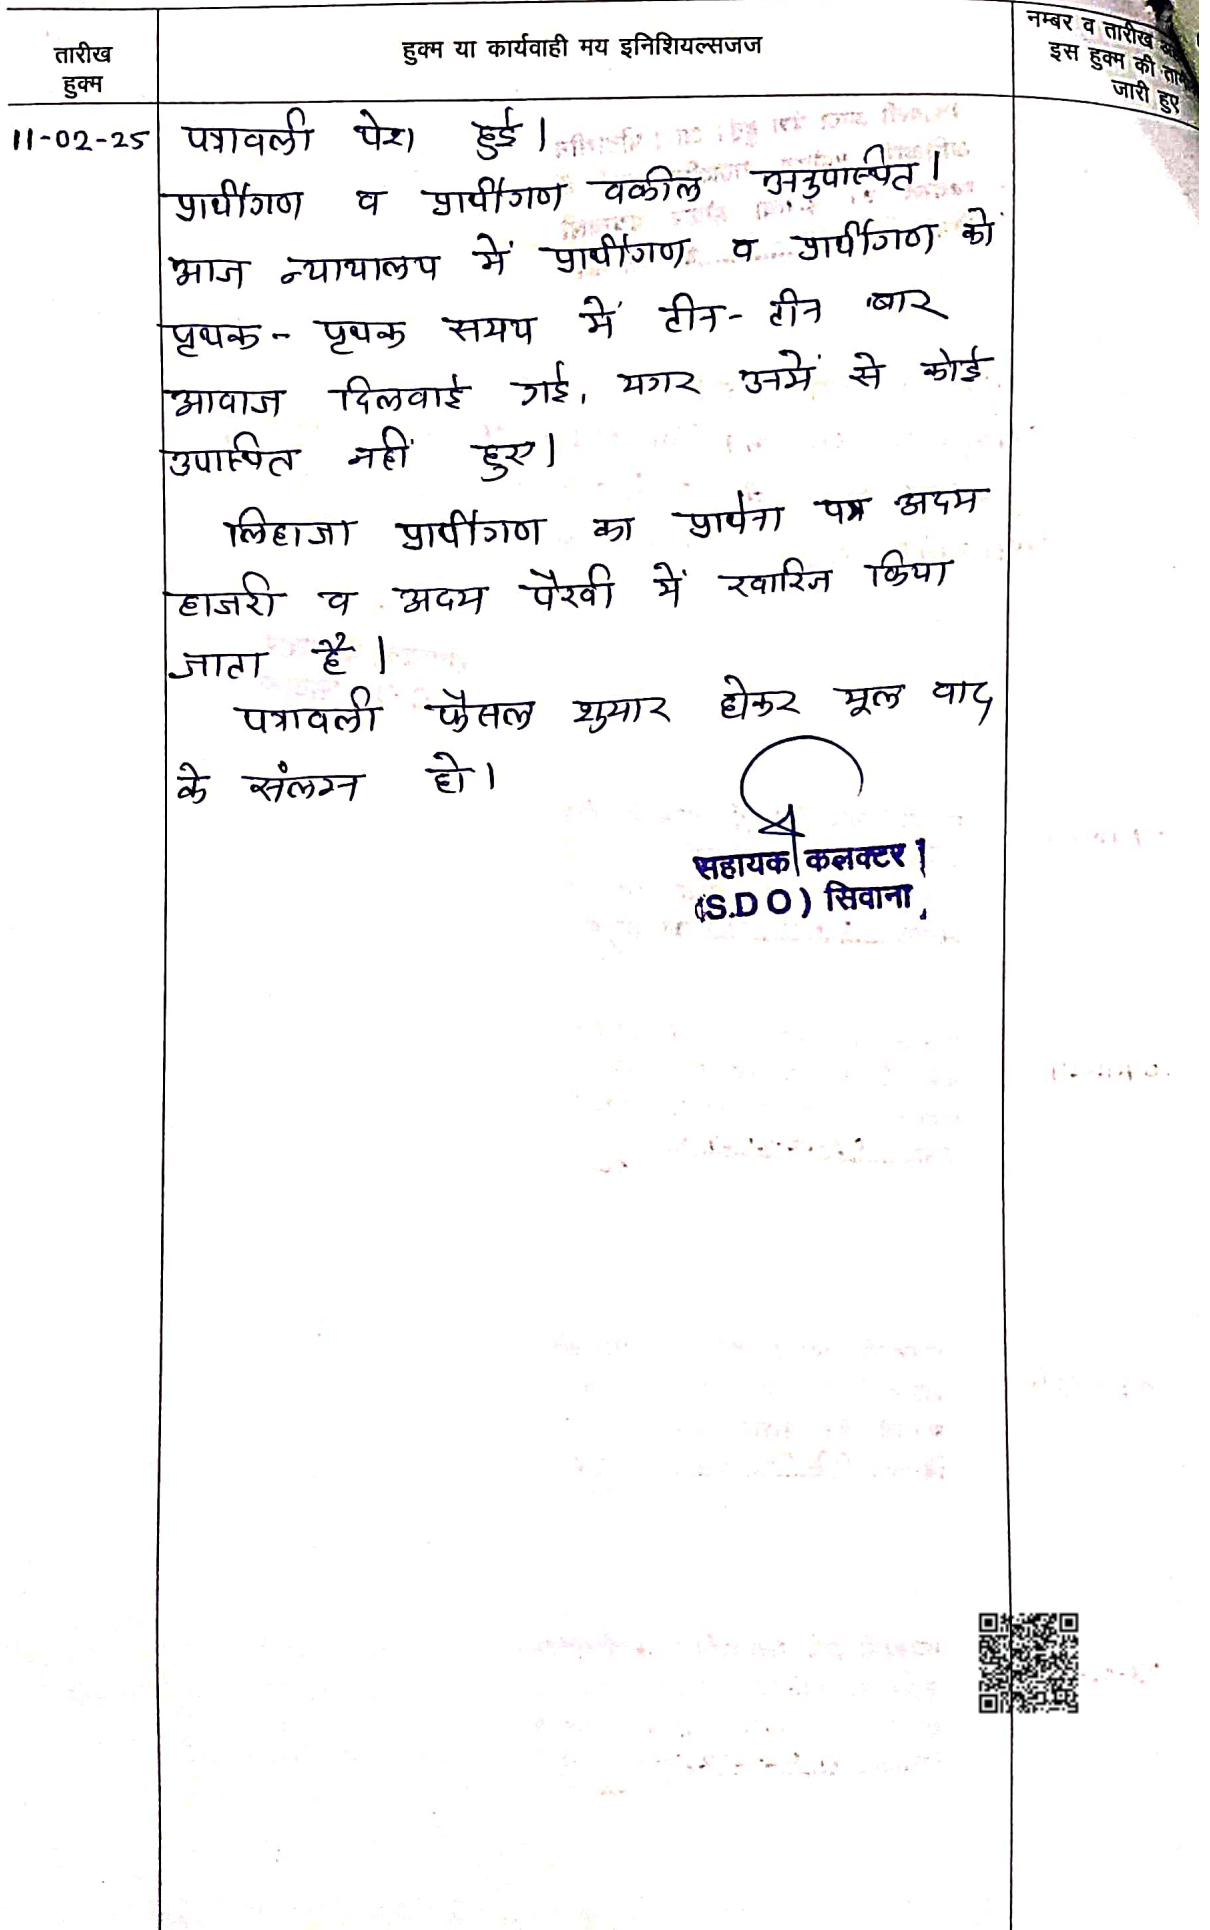 तारीख
हुक्म
हुक्म या कार्यवाही मय इनिशियल्सजज
नम्बर व तारीख
इस हुक्म की
जारी हुए
11-02-25
पत्रावली पेश हुई।
प्रार्थीगण व प्रार्थीगण वकील अनुपस्थित।
आज न्यायालय में प्रार्थीगण व प्रार्थीगण को
पृथक - पृथक समय में तीन - तीन बार
आवाज दिलवाई गई, मगर उनमें से कोई
उपस्थित नहीं हुए।
लिहाजा प्रार्थीगण का प्रार्थना पत्र अदम
हाजरी व अदम पैरवी में खारिज किया
जाता है।
पत्रावली फैसल शुमार होकर मूल वाद
के संलग्न हो।
सहायक कलक्टर
(S.D O) सिवाना